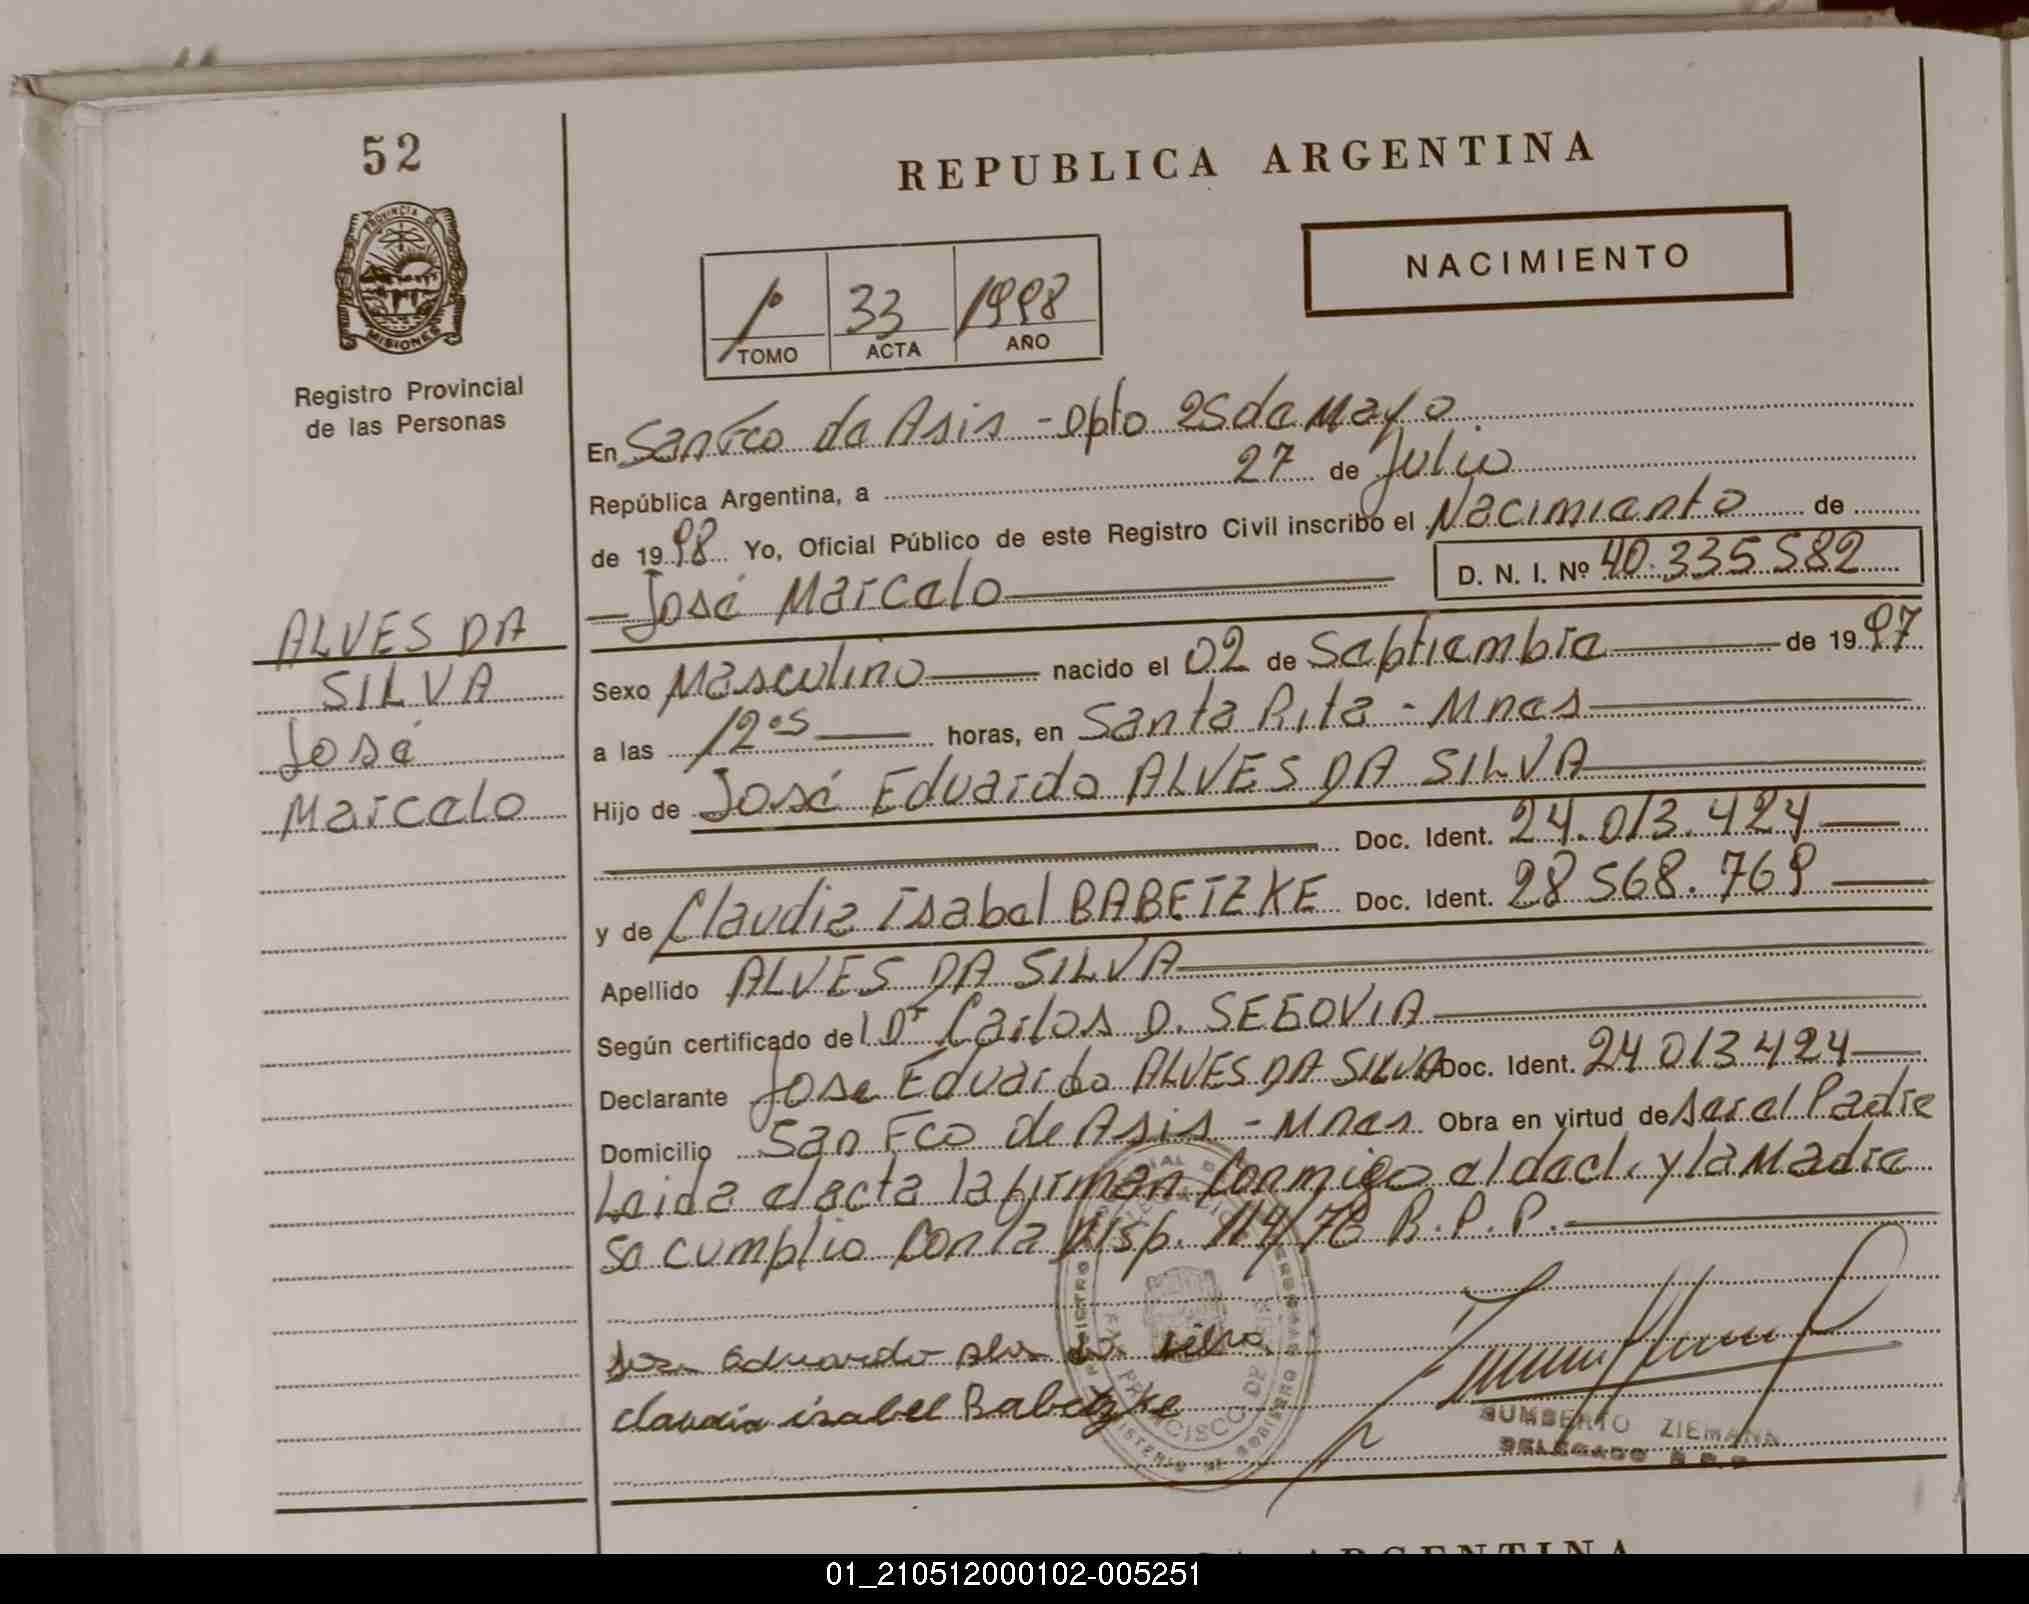 52
REPUBLICA ARGENTINA
NACIMIENTO
PROVINCIA DE
MISIONES
Registro Provincial
de las Personas
1º 33 1998
TOMO ACTA AÑO
En San Fco de Asis - Dpto 25 de Mayo
República Argentina, a 27 de Julio
de 1998 Yo, Oficial Público de este Registro Civil inscribo el Nacimiento de
José Marcelo D. N. I. Nº 40.335.582
ALVES DA
SILVA
José
Marcelo
Sexo Masculino nacido el 02 de Septiembre de 1997
a las 12 os horas, en Santa Rita - Mnes
Hijo de José Eduardo ALVES DA SILVA
Doc. Ident. 24.013.424
y de Claudia Isabel BABETZKE Doc. Ident. 28.568.769
Apellido ALVES DA SILVA
Según certificado del Dr Carlos D. SEGOVIA
Declarante Jose Eduardo ALVES DA SILVA Doc. Ident. 24.013.424
Domicilio San Fco de Asis - Mnes Obra en virtud de ser el Padre
Leida el acta la firman Conmigo el decl. y la Madre
Se cumplio Con la Disp. 114/78 R.P.P.
Jose Eduardo Alves da silva
claudia isabel Babetzke
FRANCISCO DE
HUMBERTO ZIEMANN
DELEGADO R.P.P.
ARGENTINA
01_210512000102-005251